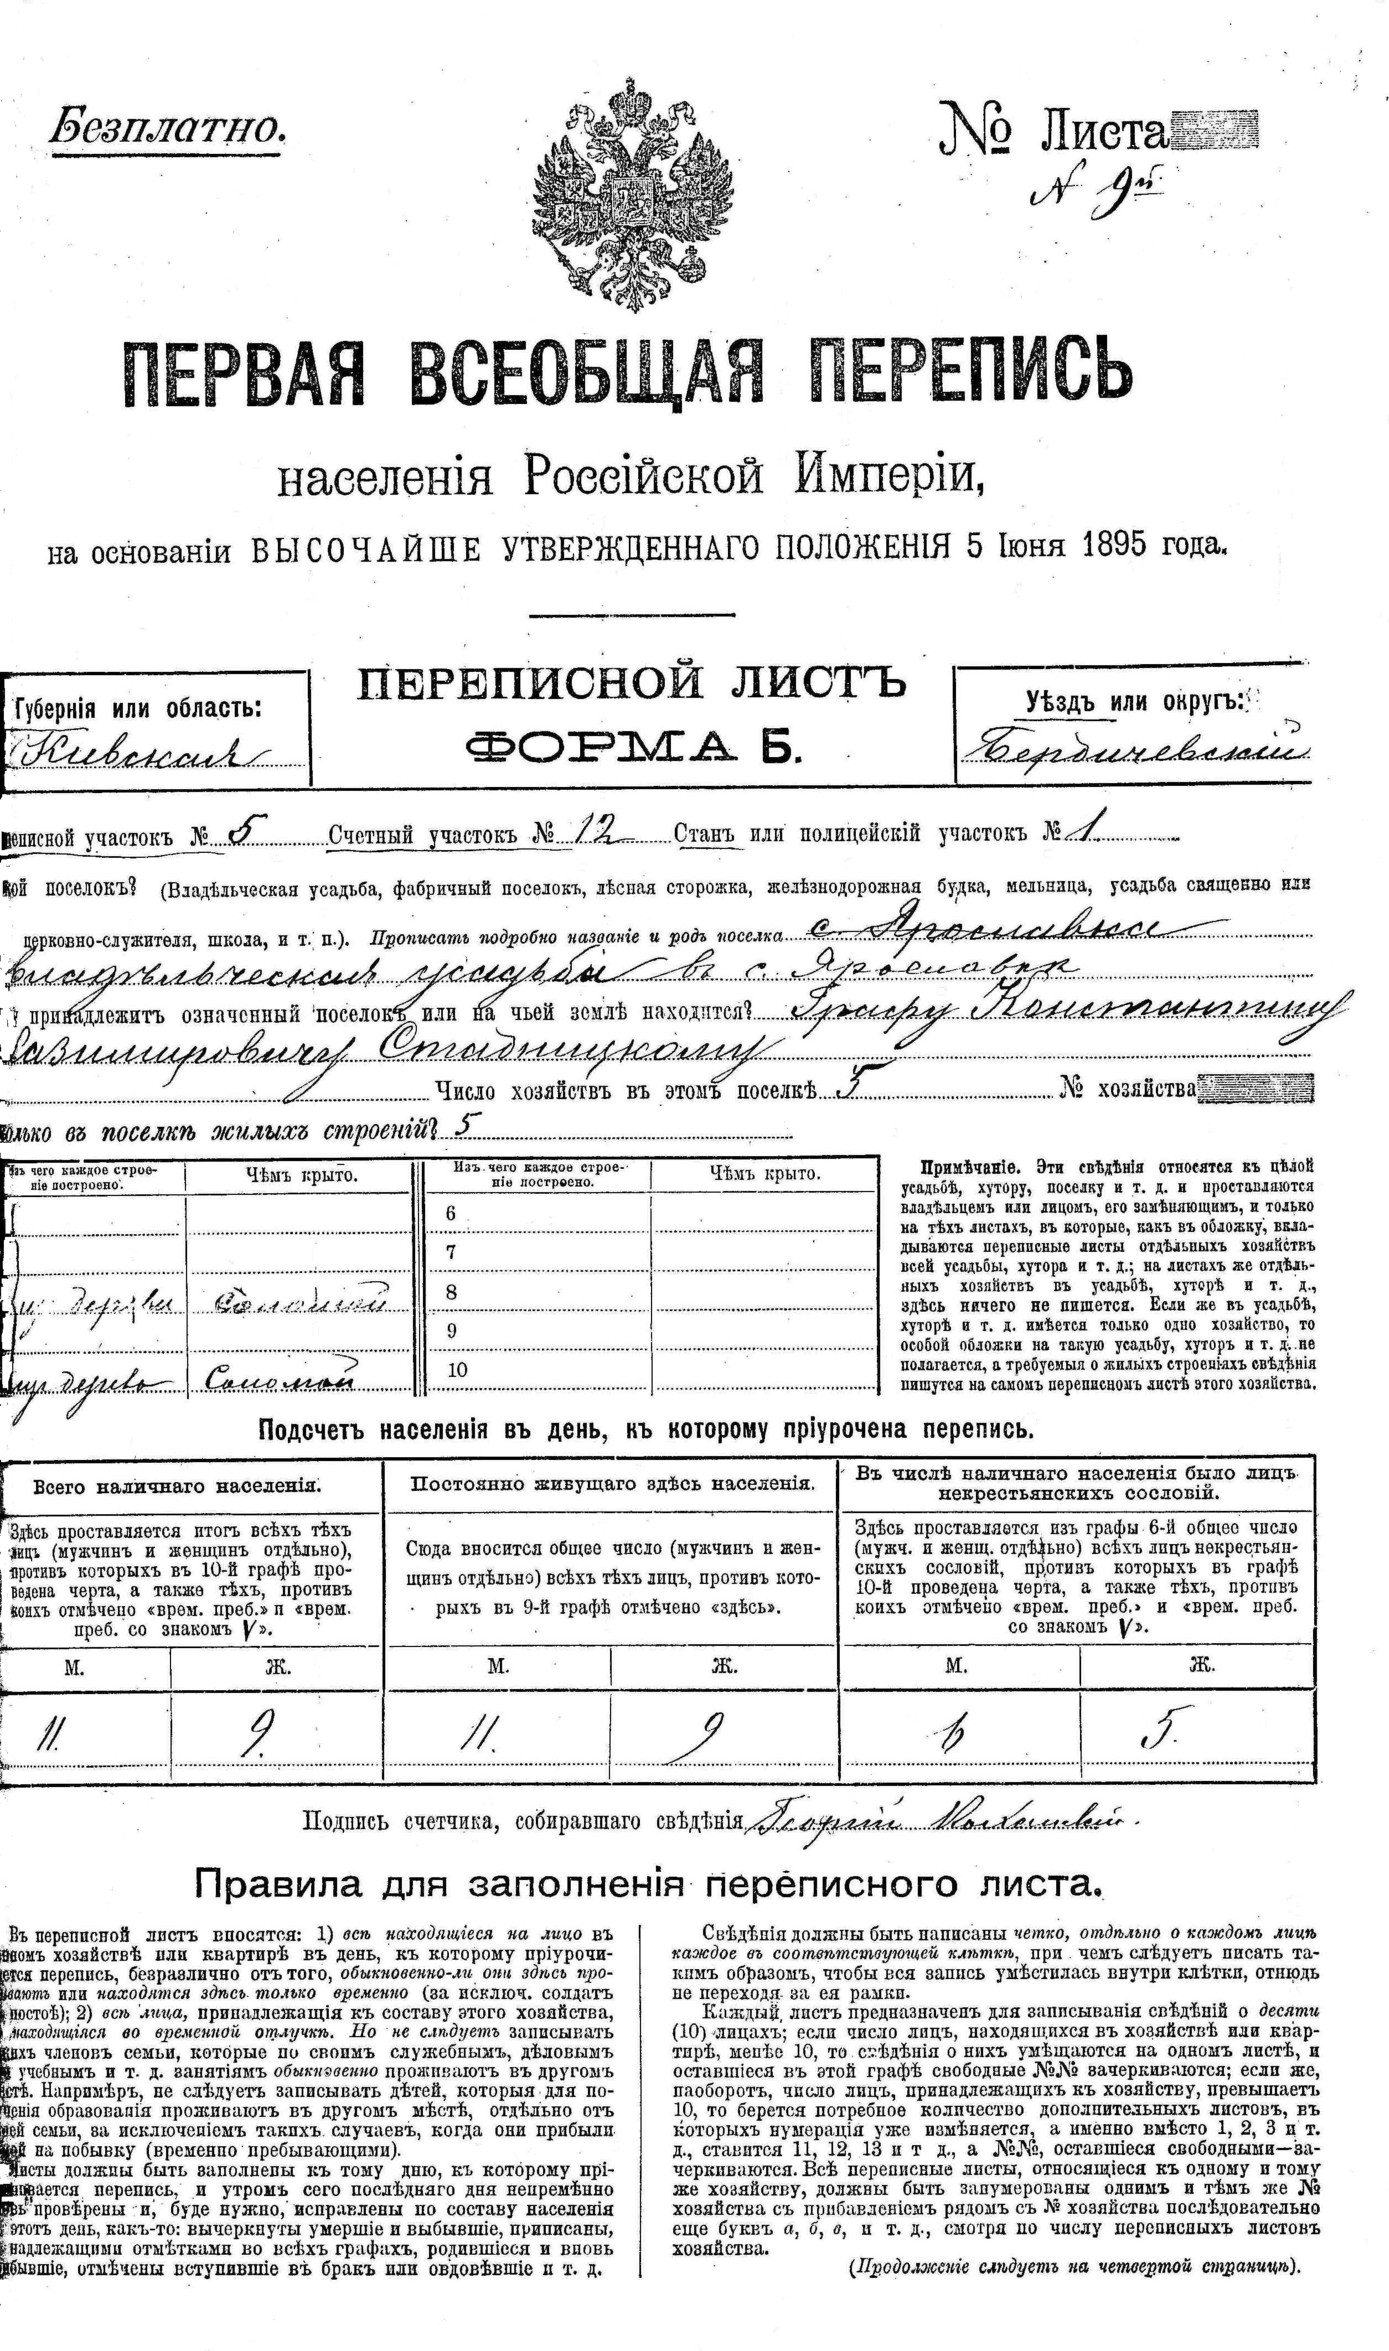 Безплатно.
№ Листа
N 9й
ПЕРВАЯ ВСЕОБЩАЯ ПЕРЕПИСЬ
населенія Россійской Имперіи,
на основаніи ВЫСОЧАЙШЕ УТВЕРЖДЕННАГО ПОЛОЖЕНІЯ 5 Іюня 1895 года.
ПЕРЕПИСНОЙ ЛИСТЪ
ФОРМА Б.
Губернія или область:
Кіевская
Уѣздъ или округъ:
Бердичевскій
реписной участокъ № 5 Счетный участокъ № 12 Станъ или полицейскій участокъ № 1
кой поселокъ? (Владѣльческая усадьба, фабричный поселокъ, лѣсная сторожка, желѣзнодорожная будка, мельница, усадьба священно или
церковно-служителя, школа, и т. п.). Прописать подробно названіе и родъ поселка с. Ярославка
владѣльческая усадьба въ с. Ярославкѣ
у принадлежитъ означенный поселокъ или на чьей землѣ находится? Графу Константину
Казимировичу Стадницкому
Число хозяйствъ въ этомъ поселкѣ 5 № хозяйства
олько въ поселкѣ жилыхъ строеній? 5
Изъ чего каждое строе-
ніе построено.
Чѣмъ крыто.
Изъ чего каждое строе-
ніе построено.
Чѣмъ крыто.
6
7
изъ дерева соломой 8
9
изъ дерева Соломой 10
Примѣчаніе. Эти свѣдѣнія относятся къ цѣлой
усадьбѣ, хутору, поселку и т. д. и проставляются
владѣльцемъ или лицомъ, его замѣняющимъ, и только
на тѣхъ листахъ, въ которые, какъ въ обложку, вкла-
дываются переписные листы отдѣльныхъ хозяйствъ
всей усадьбы, хутора и т. д.; на листахъ же отдѣль-
ныхъ хозяйствъ въ усадьбѣ, хуторѣ и т. д.,
здѣсь ничего не пишется. Если же въ усадьбѣ,
хуторѣ и т. д. имѣется только одно хозяйство, то
особой обложки на такую усадьбу, хуторъ и т. д. не
полагается, а требуемыя о жилыхъ строеніяхъ свѣдѣнія
пишутся на самомъ переписномъ листѣ этого хозяйства.
Подсчетъ населенія въ день, къ которому пріурочена перепись.
Всего наличнаго населенія.
Здѣсь проставляется итогъ всѣхъ тѣхъ
лицъ (мужчинъ и женщинъ отдѣльно),
противъ которыхъ въ 10-й графѣ про-
ведена черта, а также тѣхъ, противъ
коихъ отмѣчено «врем. преб.» и «врем.
преб. со знакомъ V».
Постоянно живущаго здѣсь населенія.
Сюда вносится общее число (мужчинъ и жен-
щинъ отдѣльно) всѣхъ тѣхъ лицъ, противъ кото-
рыхъ въ 9-й графѣ отмѣчено «здѣсь».
Въ числѣ наличнаго населенія было лицъ
некрестьянскихъ сословій.
Здѣсь проставляется изъ графы 6-й общее число
(мужч. и женщ. отдѣльно) всѣхъ лицъ некрестьян-
скихъ сословій, противъ которыхъ въ графѣ
10-й проведена черта, а также тѣхъ, противъ
коихъ отмѣчено «врем. преб.» и «врем. преб.
со знакомъ V».
М. Ж. М. Ж. М. Ж.
11. 9. 11. 9 6 5.
Подпись счетчика, собиравшаго свѣдѣнія Георгій
Правила для заполненія переписного листа.
Въ переписной листъ вносятся: 1) всѣ находящіеся на лицо въ
номъ хозяйствѣ или квартирѣ въ день, къ которому пріурочи-
ется перепись, безразлично отъ того, обыкновенно-ли они здѣсь про-
вають или находятся здѣсь только временно (за исключ. солдатъ
постоѣ); 2) всѣ лица, принадлежащія къ составу этого хозяйства,
находящіяся во временной отлучкѣ. Но не слѣдуетъ записывать
ихъ членовъ семьи, которые по своимъ служебнымъ, дѣловымъ
учебнымъ и т. д. занятіямъ обыкновенно проживаютъ въ другомъ
стѣ. Напримѣръ, не слѣдуетъ записывать дѣтей, которыя для по-
ченія образованія проживаютъ въ другомъ мѣстѣ, отдѣльно отъ
ей семьи, за исключеніемъ такихъ случаевъ, когда они прибыли
ой на побывку (временно пребывающими).
Листы должны быть заполнены къ тому дню, къ которому прі-
чивается перепись, и утромъ сего послѣдняго дня непремѣнно
вь провѣрены и, буде нужно, исправлены по составу населенія
этотъ день, какъ-то: вычеркнуты умершіе и выбывшіе, приписаны,
надлежащими отмѣтками во всѣхъ графахъ, родившіеся и вновь
бывшіе, отмѣчены вступившіе въ бракъ или овдовѣвшіе и т. д.
Свѣдѣнія должны быть написаны четко, отдѣльно о каждомъ лицѣ
каждое въ соотвѣтствующей клѣткѣ, при чемъ слѣдуетъ писать та-
кимъ образомъ, чтобы вся запись умѣстилась внутри клѣтки, отнюдь
не переходя за ея рамки.
Каждый листъ предназначенъ для записыванія свѣдѣній о десяти
(10) лицахъ; если число лицъ, находящихся въ хозяйствѣ или квар-
тирѣ, менѣе 10, то свѣдѣнія о нихъ умѣщаются на одномъ листѣ, и
оставшіеся въ этой графѣ свободные №№ зачеркиваются; если же,
наоборотъ, число лицъ, принадлежащихъ къ хозяйству, превышаетъ
10, то берется потребное количество дополнительныхъ листовъ, въ
которыхъ нумерація уже измѣняется, а именно вмѣсто 1, 2, 3 и т.
д., ставится 11, 12, 13 и т д., а №№, оставшіеся свободными—за-
черкиваются. Всѣ переписные листы, относящіеся къ одному и тому
же хозяйству, должны быть занумерованы однимъ и тѣмъ же №
хозяйства съ прибавленіемъ рядомъ съ № хозяйства послѣдовательно
еще буквъ а, б, в, и т. д., смотря по числу переписныхъ листовъ
хозяйства.
(Продолженіе слѣдуетъ на четвертой страницѣ).